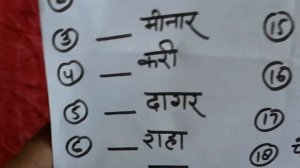 ③ __ मीनार ⑮
④ __ करी ⑯
⑤ __ दागर ⑰
⑥ __ राहा ⑱